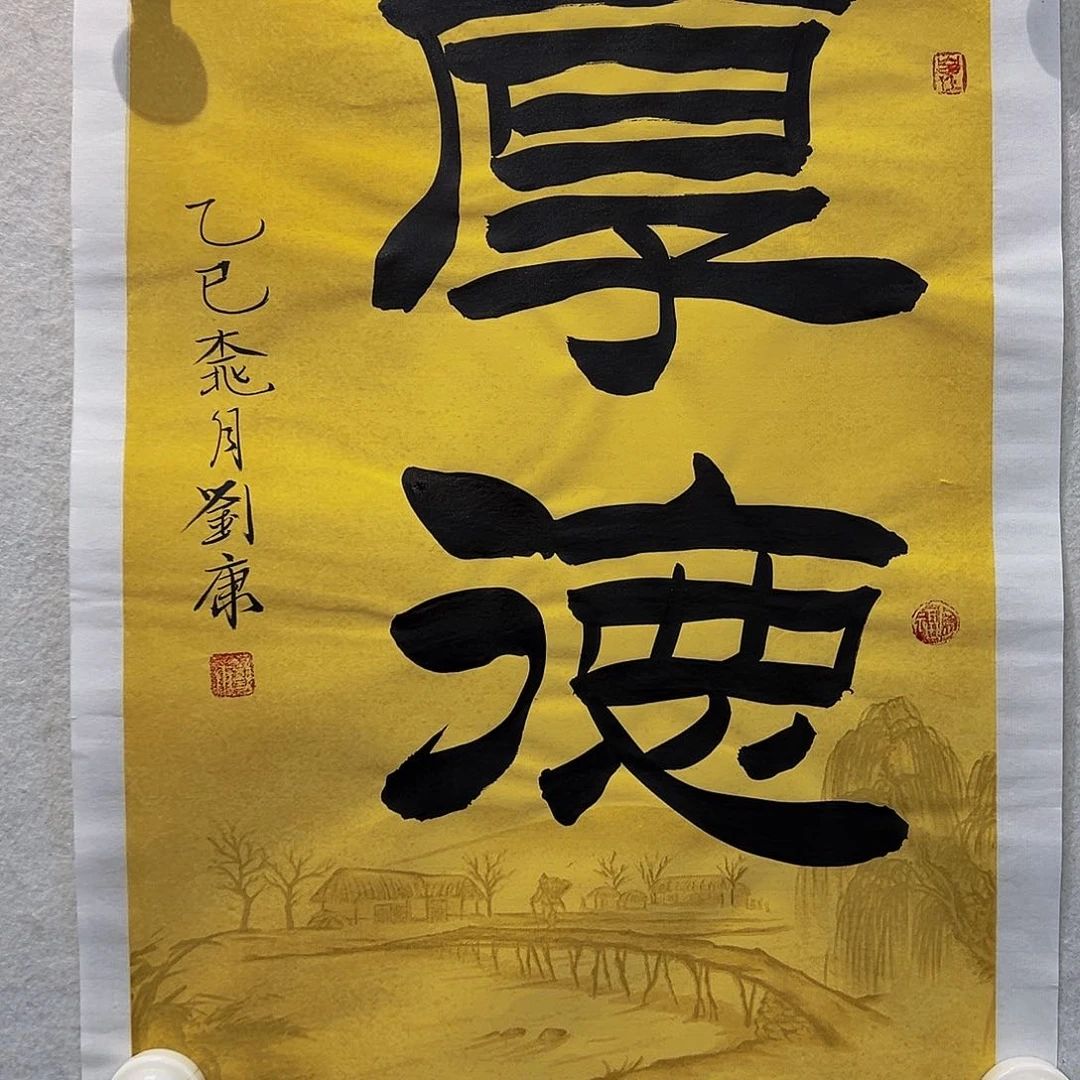 厚德
乙巳桃月劉康